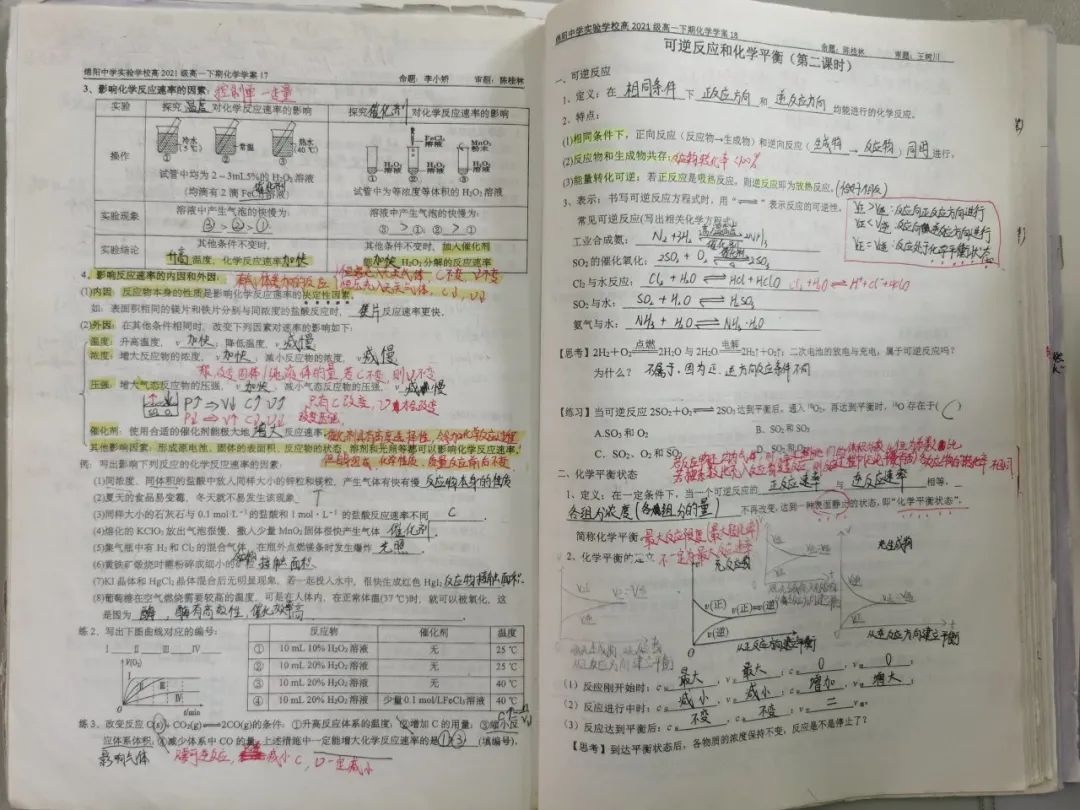 绵阳中学实验学校高 2021 级高一下期化学学案 17 命题：李小娇 审题：陈桂林
3、影响化学反应速率的因素：控制单一变量
实验 探究 温度 对化学反应速率的影响 探究 催化剂 对化学反应速率的影响
操作
冷水(5℃) 常温 热水(40℃)
① ② ③
FeCl₃溶液 MnO₂粉末
H₂O₂溶液 H₂O₂溶液 H₂O₂溶液
① ② ③
试管中均为 2～3mL5%的 H₂O₂溶液
催化剂
(均滴有 2 滴 FeCl₃溶液)
试管中为等浓度等体积的 H₂O₂溶液
实验现象 溶液中产生气泡的快慢为： ③ > ② > ①
溶液中产生气泡的快慢为： ③ > ①、② > ①
实验结论 其他条件不变时，升高 温度，化学反应速率 加快
其他条件不变时，加入催化剂能 加快 H₂O₂分解的反应速率
4、影响反应速率的内因和外因：
(1)内因：反应物本身的性质是影响化学反应速率的决定性因素。
如：表面积相同的镁片和铁片分别与同浓度的盐酸反应时，镁片 反应速率更快。
(2)外因：在其他条件相同时，改变下列因素对速率的影响如下：
温度：升高温度，v 加快；降低温度，v 减慢
浓度：增大反应物的浓度，v 加快，减小反应物的浓度，v 减慢
改变固体/纯液体的量，若C不变，则V不变
压强：增大气态反应物的压强，v 加快，减小气态反应物的压强，v 减慢
P↑ ⇒ V↓ C↑ υ↑
只有C改变，υ才会改变
P↓ ⇒ V↑ C↓ υ↓
催化剂：使用合适的催化剂能极大地 增大 反应速率。
其他影响因素：形成原电池、固体的表面积、反应物的状态、溶剂和光照等都可以影响化学反应速率。
例：写出影响下列反应的化学反应速率的因素：
(1)同浓度、同体积的盐酸中放入同样大小的锌粒和镁粒，产生气体有快有慢 反应物本身的性质
(2)夏天的食品易变霉，冬天就不易发生该现象 T
(3)同样大小的石灰石与 0.1 mol·L⁻¹ 的盐酸和 1 mol·L⁻¹ 的盐酸反应速率不同 C
(4)熔化的 KClO₃ 放出气泡很慢，撒入少量 MnO₂ 固体很快产生气体 催化剂
(5)集气瓶中有 H₂ 和 Cl₂ 的混合气体，在瓶外点燃镁条时发生爆炸 光照
(6)黄铁矿煅烧时需粉碎成细小的矿粒 接触面积
(7)KI 晶体和 HgCl₂ 晶体混合后无明显现象，若一起投入水中，很快生成红色 HgI₂ 反应物接触面积
(8)葡萄糖在空气燃烧需要较高的温度，可是在人体内，在正常体温(37 ℃)时，就可以被氧化，这
是因为 酶，酶有高效性，催化效率高
练 2、写出下图曲线对应的编号：
Ⅰ___Ⅱ___Ⅲ___Ⅳ___
V(O₂)
Ⅰ Ⅱ Ⅲ Ⅳ
0 t/min
反应物 催化剂 温度
① 10 mL 10% H₂O₂ 溶液 无 25 ℃
② 10 mL 20% H₂O₂ 溶液 无 25 ℃
③ 10 mL 20% H₂O₂ 溶液 无 40 ℃
④ 10 mL 20% H₂O₂ 溶液 少量 0.1 mol/LFeCl₃溶液 40 ℃
练 3、改变反应 C(s)＋CO₂(g)⇌2CO(g)的条件：①升高反应体系的温度，②增加 C 的用量；③缩小反
应体系体积，④减少体系中 CO 的量。上述措施中一定能增大化学反应速率的是 ①③ (填编号)。
影响气体
对可逆反应，减小C，υ一定减小
绵阳中学实验学校高 2021 级高一下期化学学案 18 命题：陈桂林 审题：王树川
可逆反应和化学平衡（第二课时）
一、可逆反应
1、定义：在 相同条件 下 正反应方向 和 逆反应方向 均能进行的化学反应。
2、特点：
(1)相同条件下，正向反应（反应物→生成物）和逆向反应（生成物→反应物）同时 进行。
(2)反应物和生成物共存：反应物转化率<100%
(3)能量转化可逆：若正反应是吸热反应，则逆反应即为放热反应。
3、表示：书写可逆反应方程式时，用“⇌”表示反应的可逆性。
V正>V逆：反应向正反应方向进行
V正<V逆：反应向逆反应方向进行
V正=V逆：反应处于化学平衡状态
常见可逆反应(写出相关化学方程式)
工业合成氨： N₂+3H₂ ⇌ 2NH₃
SO₂ 的催化氧化： 2SO₂ + O₂ ⇌ 2SO₃
Cl₂ 与水反应： Cl₂ + H₂O ⇌ HCl + HClO Cl₂+H₂O ⇌ H⁺+Cl⁻+HClO
SO₂ 与水： SO₂ + H₂O ⇌ H₂SO₃
氨气与水： NH₃ + H₂O ⇌ NH₃·H₂O
【思考】2H₂＋O₂ 点燃 2H₂O 与 2H₂O 电解 2H₂↑＋O₂↑；二次电池的放电与充电，属于可逆反应吗？
为什么？ 不属于，因为正、逆方向反应条件不同
【练习】当可逆反应 2SO₂＋O₂⇌2SO₃ 达到平衡后，通入 ¹⁸O₂，再达到平衡时，¹⁸O 存在于( C )
A.SO₃ 和 O₂ B．SO₂ 和 SO₃
C．SO₂、O₂ 和 SO₃ D．SO₂ 和 O₂
二、化学平衡状态
1、定义：在一定条件下，当一个可逆反应的 正反应速率 与 逆反应速率 相等，
各组分浓度（各组分的量） 不再改变，达到一种表面静止的状态，即“化学平衡状态”，
简称化学平衡。最大反应限度（最大转化率）
2、化学平衡的建立：不一定为最大反应速率
充反应物 充生成物
V正 V逆 V正=V逆
v(正) v(正)=v(逆) v(逆)
从正反应方向建立平衡
从逆反应方向建立平衡
(1) 反应刚开始时：c反 最大，v正 最大；c生 0，v逆 0
(2) 反应进行中时：c反 减小，v正 减小；c生 增加，v逆 增大
(3) 反应达到平衡后：c反 不变，c生 不变；v正 = v逆
【思考】到达平衡状态后，各物质的浓度保持不变，反应是不是停止了？